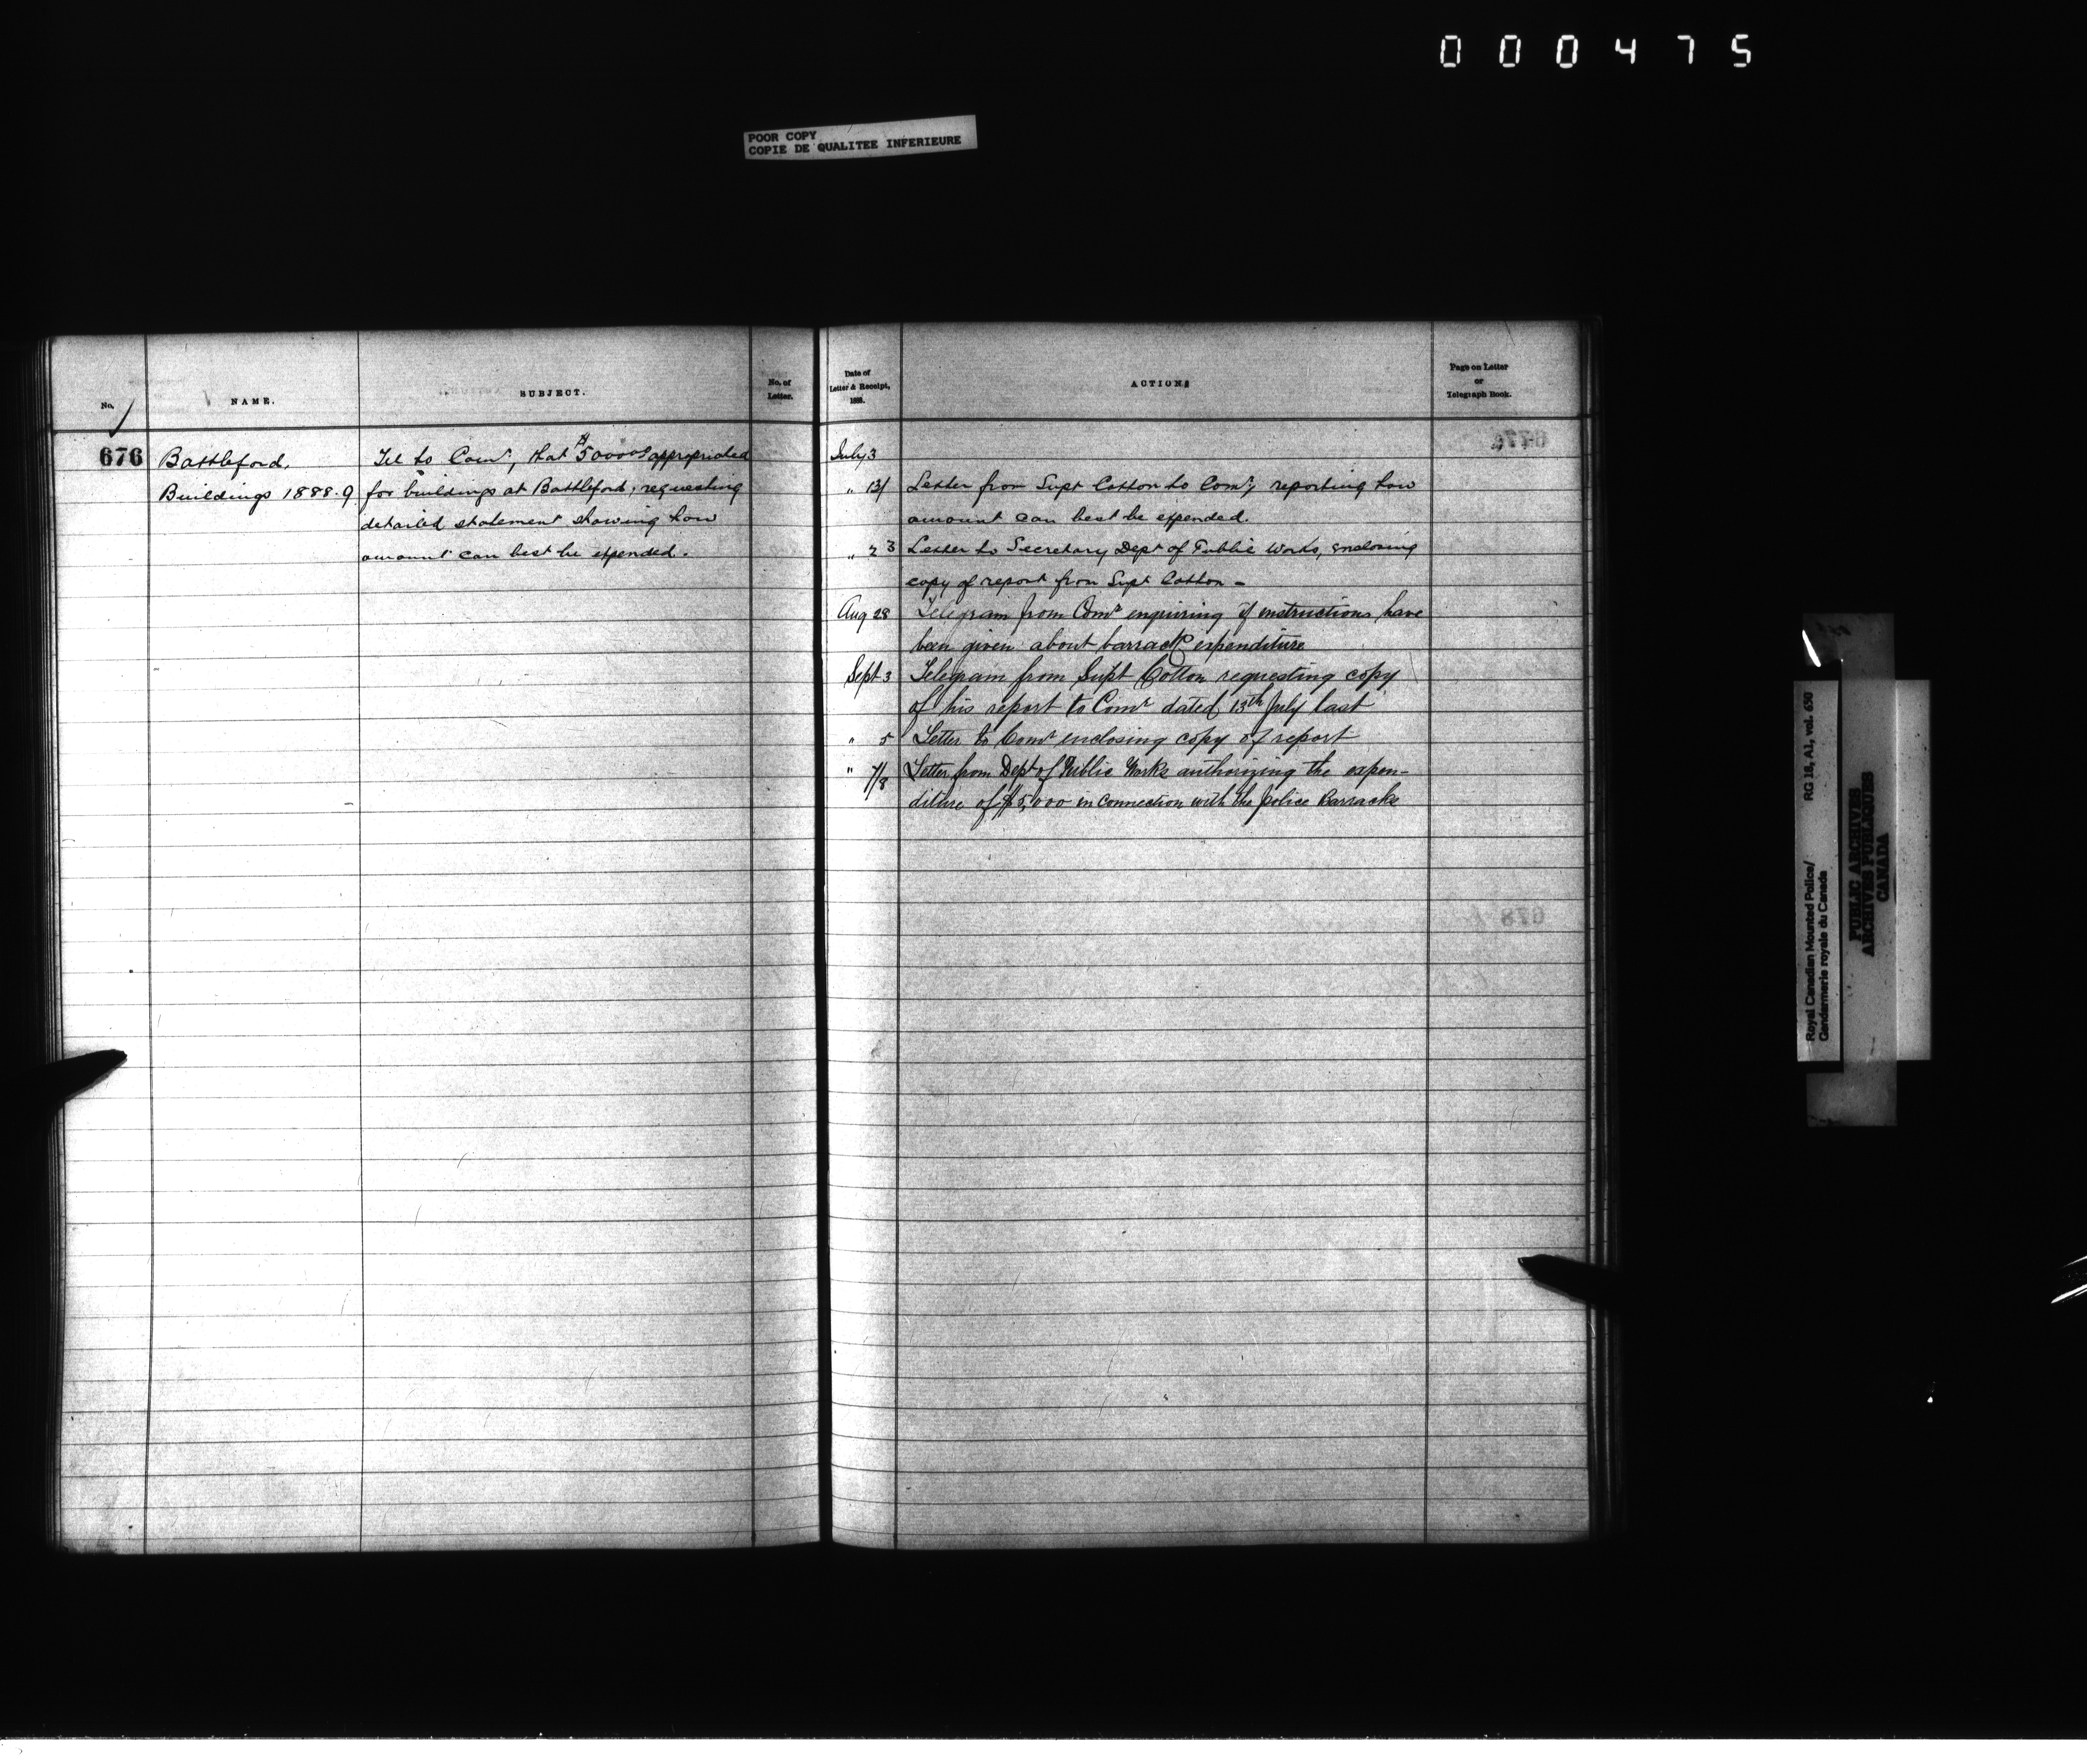 000475
POOR COPY
COPIE DE QUALITEE INFERIEURE
No.
NAME.
SUBJECT.
No. of
Letter.
Date of
Letter & Receipt,
1888.
ACTIONS
Page on Letter
or
Telegraph Book.
676
Battleford.
Buildings 1888-9
Tel to Comr, that $5000 appropriated
for buildings at Battleford, requesting
detailed statement showing how
amount can best be expended.
July 3
" 13/ Letter from Supt Cotton to Comr, reporting how
amount can best be expended.
" 23 Letter to Secretary Dept of Public Works, enclosing
copy of report from Supt Cotton -
Aug 28 Telegram from Comr enquiring if instructions have
been given about barrack expenditure
Sept 3 Telegram from Supt Cotton requesting copy
of his report to Comr dated 13th July last
" 5 Letter to Comr enclosing copy of report
" 7/8 Letter from Dept of Public Works authorizing the expen-
diture of $5,000 in connection with the police Barracks
Royal Canadian Mounted Police/
Gendarmerie royale du Canada
RG 18, A1, vol. 690
PUBLIC ARCHIVES
ARCHIVES PUBLIQUES
CANADA